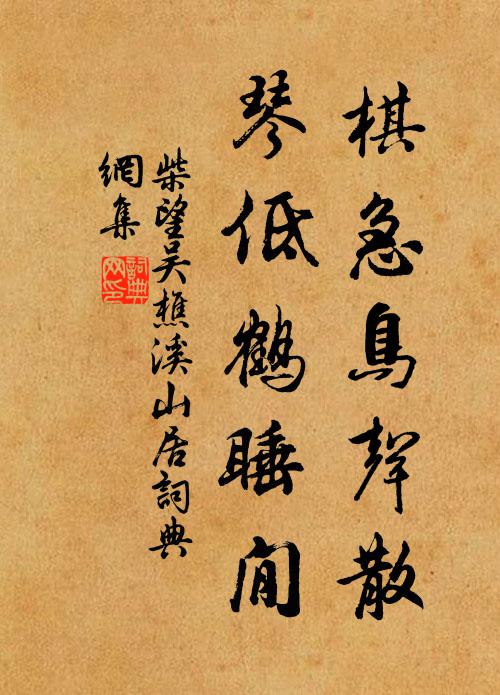 棋急鳥聲散
琴低鶴睡閒
柴望吳樵溪山居詞典
網集
詞典網印